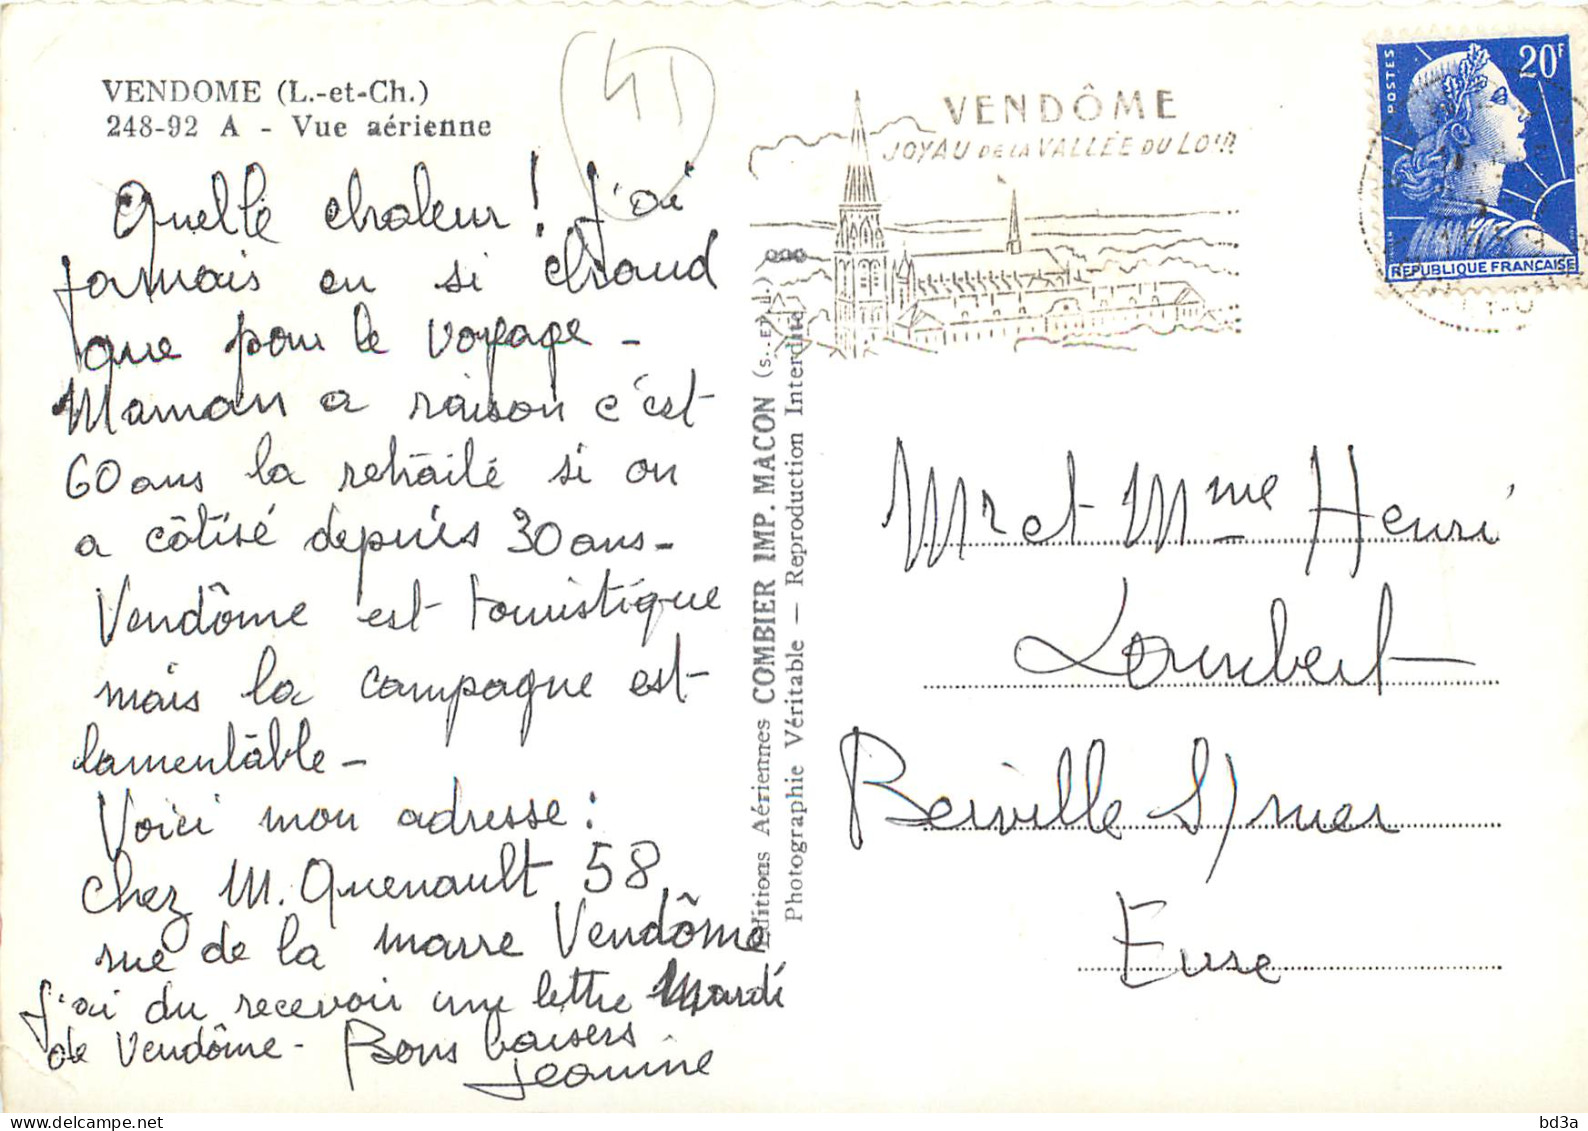 VENDOME (L.-et-Ch.)
248-92 A - Vue aérienne
41
Quelle chaleur ! J'ai
jamais eu si chaud
que pour le voyage -
Maman a raison c'est
60 ans la retraite si on
a côtisé depuis 30 ans -
Vendôme est touristique
mais la campagne est
lamentable -
Voici mon adresse :
chez M. Quenault 58
rue de la marre Vendôme
J'ai du recevoir une lettre Mardi
de Vendôme - Bons baisers
Jeanine
Editions Aériennes COMBIER IMP. MACON (S.-ET-L.)
Photographie Véritable — Reproduction Interdite
VENDÔME
JOYAU DE LA VALLÉE DU LOIR
POSTES
20F
REPUBLIQUE FRANÇAISE
Mr et Mme Henri
Lambert
Berville s/mer
Eure
bd3a